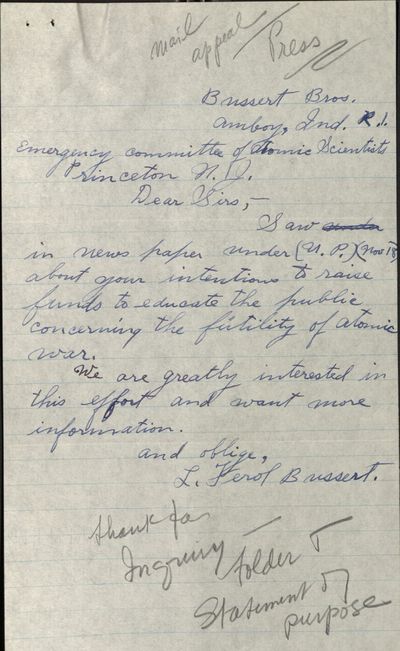 mail
appeal / Press
Bussert Bros.
Amboy, Ind. R.1.
Emergency committee of Atomic Scientists
Princeton N. J.
Dear Sirs,-
Saw under
in news paper under (U. P.) (Nov 18)
about your intentions to raise
funds to educate the public
concerning the futility of atomic
war.
We are greatly interested in
this effort and want more
information.
and oblige,
L. Ferol Bussert.
thank for
Inquiry — folder +
Statement of
purpose